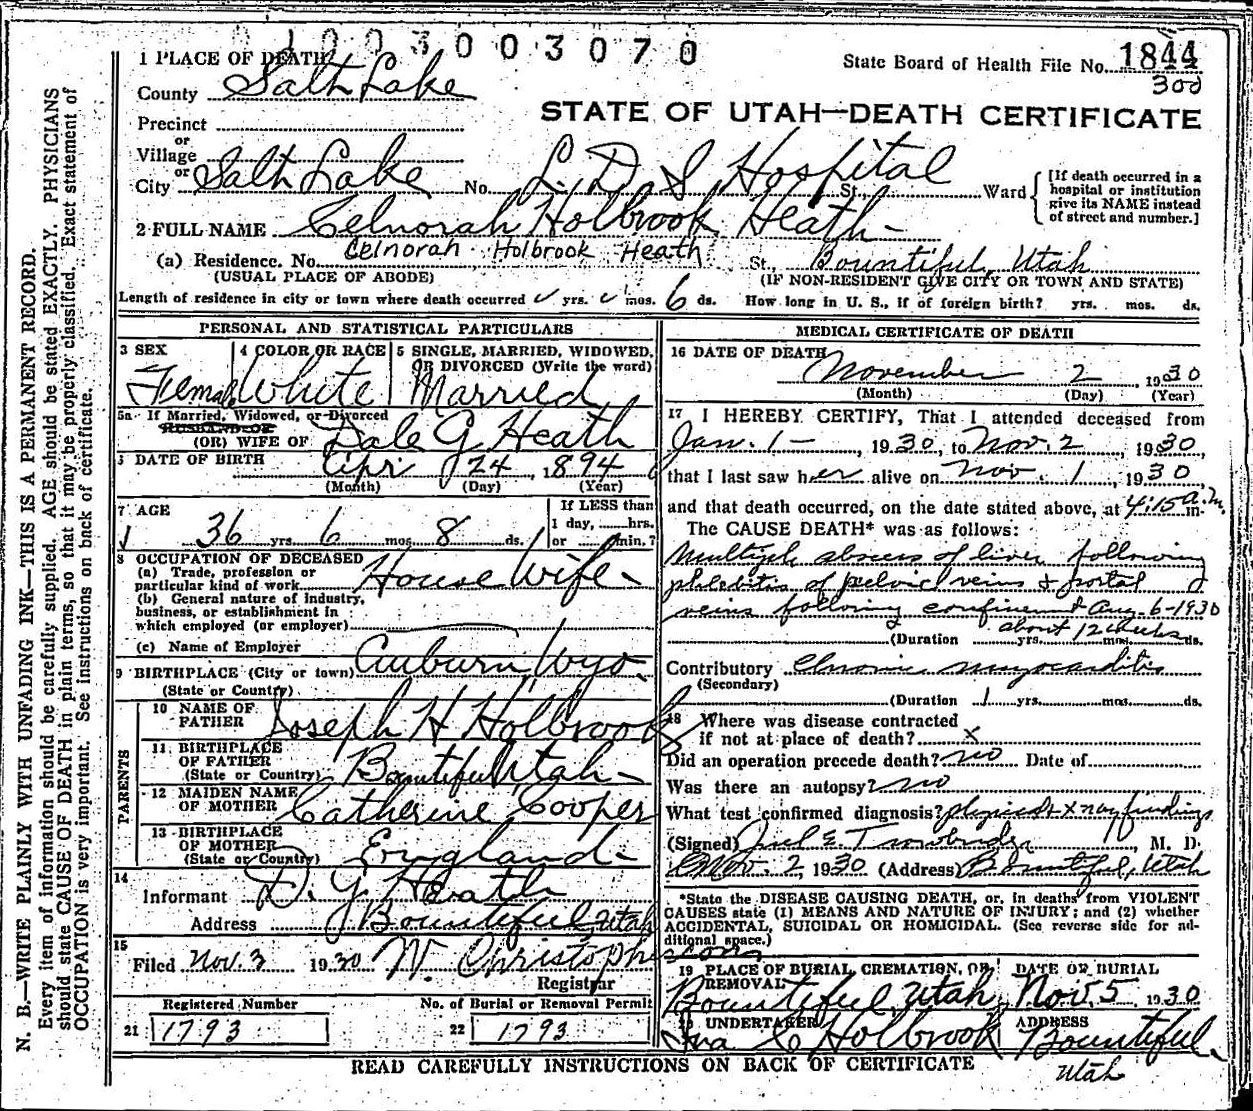 003070
1 PLACE OF DEATH
State Board of Health File No. 1844
300
County Salt Lake
STATE OF UTAH—DEATH CERTIFICATE
Precinct
or
Village
or
City Salt Lake No. L. D. S. Hospital St. Ward
[If death occurred in a
hospital or institution
give its NAME instead
of street and number.]
2 FULL NAME Celnorah Holbrook Heath
Celnorah Holbrook Heath
(a) Residence. No. St. Bountiful, Utah
(USUAL PLACE OF ABODE) (IF NON-RESIDENT GIVE CITY OR TOWN AND STATE)
Length of residence in city or town where death occurred yrs. mos. 6 ds. How long in U. S., if of foreign birth? yrs. mos. ds.
PERSONAL AND STATISTICAL PARTICULARS
3 SEX 4 COLOR OR RACE 5 SINGLE, MARRIED, WIDOWED,
OR DIVORCED (Write the word)
Female White Married
5a If Married, Widowed, or Divorced
HUSBAND OF
(OR) WIFE OF Dale G Heath
6 DATE OF BIRTH Apr 24, 1894
(Month) (Day) (Year)
7 AGE If LESS than
1 day, hrs.
36 yrs. 6 mos. 8 ds. or min.?
8 OCCUPATION OF DECEASED
(a) Trade, profession or
particular kind of work House Wife
(b) General nature of industry,
business, or establishment in
which employed (or employer)
(c) Name of Employer
9 BIRTHPLACE (City or town) Auburn, Wyo.
(State or Country)
PARENTS
10 NAME OF
FATHER Joseph H Holbrook
11 BIRTHPLACE
OF FATHER
(State or Country) Bountiful, Utah
12 MAIDEN NAME
OF MOTHER Catherine Cooper
13 BIRTHPLACE
OF MOTHER
(State or Country) England
14
Informant D. G. Heath
Address Bountiful, Utah
15
Filed Nov. 3 1930 W. Christophersons
Registrar
Registered Number No. of Burial or Removal Permit
21 1793 22 1793
MEDICAL CERTIFICATE OF DEATH
16 DATE OF DEATH
November 2, 1930
(Month) (Day) (Year)
17 I HEREBY CERTIFY, That I attended deceased from
Jan. 1 — , 1930, to Nov. 2 1930,
that I last saw her alive on Nov. 1, 1930
and that death occurred, on the date stated above, at 4:15 a.m.
The CAUSE DEATH* was as follows:
Multiple abscess of liver following
phlebitis of pelvic veins & portal
veins following confinement Aug. 6-1930
about 12 weeks
(Duration yrs. mos. ds.
Contributory Chronic myocarditis
(Secondary)
(Duration 1 yrs. mos. ds.
18 Where was disease contracted
if not at place of death? x
Did an operation precede death? no Date of
Was there an autopsy? no
What test confirmed diagnosis? physical & x ray findings
(Signed) Joel E. Trowbridge, M. D.
Nov. 2, 1930 (Address) Bountiful, Utah
*State the DISEASE CAUSING DEATH, or, in deaths from VIOLENT
CAUSES state (1) MEANS AND NATURE OF INJURY; and (2) whether
ACCIDENTAL, SUICIDAL OR HOMICIDAL. (See reverse side for ad-
ditional space.)
19 PLACE OF BURIAL, CREMATION, OR DATE OF BURIAL
REMOVAL
Bountiful, Utah Nov. 5, 1930
20 UNDERTAKER ADDRESS
Iva C Holbrook Bountiful,
Utah
READ CAREFULLY INSTRUCTIONS ON BACK OF CERTIFICATE
N. B.—WRITE PLAINLY WITH UNFADING INK—THIS IS A PERMANENT RECORD.
Every item of information should be carefully supplied. AGE should be stated EXACTLY. PHYSICIANS
should state CAUSE OF DEATH in plain terms, so that it may be properly classified. Exact statement of
OCCUPATION is very important. See instructions on back of certificate.